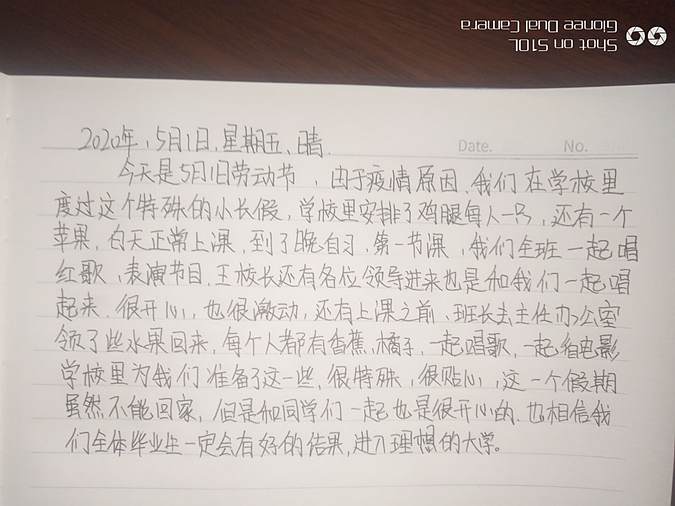 Shot on S10L
Gionee Dual Camera
Date. No.
2020年,5月1日,星期五、晴
今天是5月1日劳动节,由于疫情原因,我们在学校里
度过这个特殊的小长假,学校里安排了鸡腿每人一只,还有一个
苹果,白天正常上课,到了晚自习,第一节课,我们全班一起唱
红歌,表演节目,王校长还有各位领导进来也是和我们一起唱
起来.很开心,也很激动,还有上课之前、班长去主任办公室
领了些水果回来,每个人都有香蕉,橘子,一起唱歌,一起看电影
学校里为我们准备了这一些,很特殊,很贴心,这一个假期
虽然不能回家,但是和同学们一起也是很开心的.也相信我
们全体毕业生一定会有好的结果,进入理想的大学。